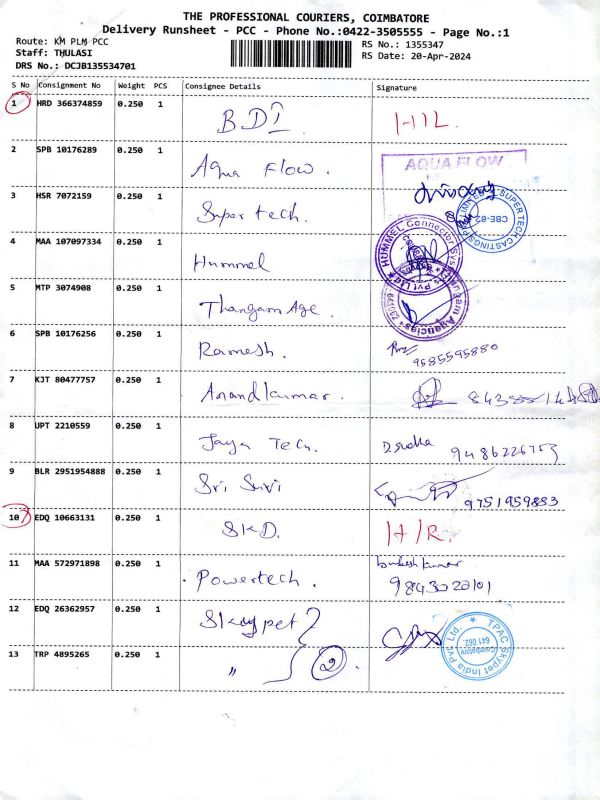 THE PROFESSIONAL COURIERS, COIMBATORE
Delivery Runsheet - PCC - Phone No.:0422-3505555 - Page No.:1
Route: KM PLM PCC
Staff: THULASI
DRS No.: DCJB135534701
RS No.: 1355347
RS Date: 20-Apr-2024
S No Consignment No Weight PCS Consignee Details Signature
1 HRD 366374859 0.250 1 BDI HIL.
2 SPB 10176289 0.250 1 Aqua Flow. AQUA FLOW
3 HSR 7072159 0.250 1 Super tech. SUPERTECH CASTINGS CBE-82
4 MAA 107097334 0.250 1 Hummel HUMMEL Connector Sys Pvt Ltd
5 MTP 3074908 0.250 1 Thangam Age. Thangam Agencies
6 SPB 10176256 0.250 1 Ramesh. 9585595880
7 KJT 80477757 0.250 1 Anandkumar.
8 UPT 2210559 0.250 1 Jaya Tech. 9486226753
9 BLR 2951954888 0.250 1 Sri Suri 9751959883
10 EDQ 10663131 0.250 1 SKD. H/R.
11 MAA 572971898 0.250 1 Powertech.
12 EDQ 26362957 0.250 1 Skypet TPAC Skypet India Pvt. Ltd. Coimbatore 641 062.
13 TRP 4895265 0.250 1 " 2